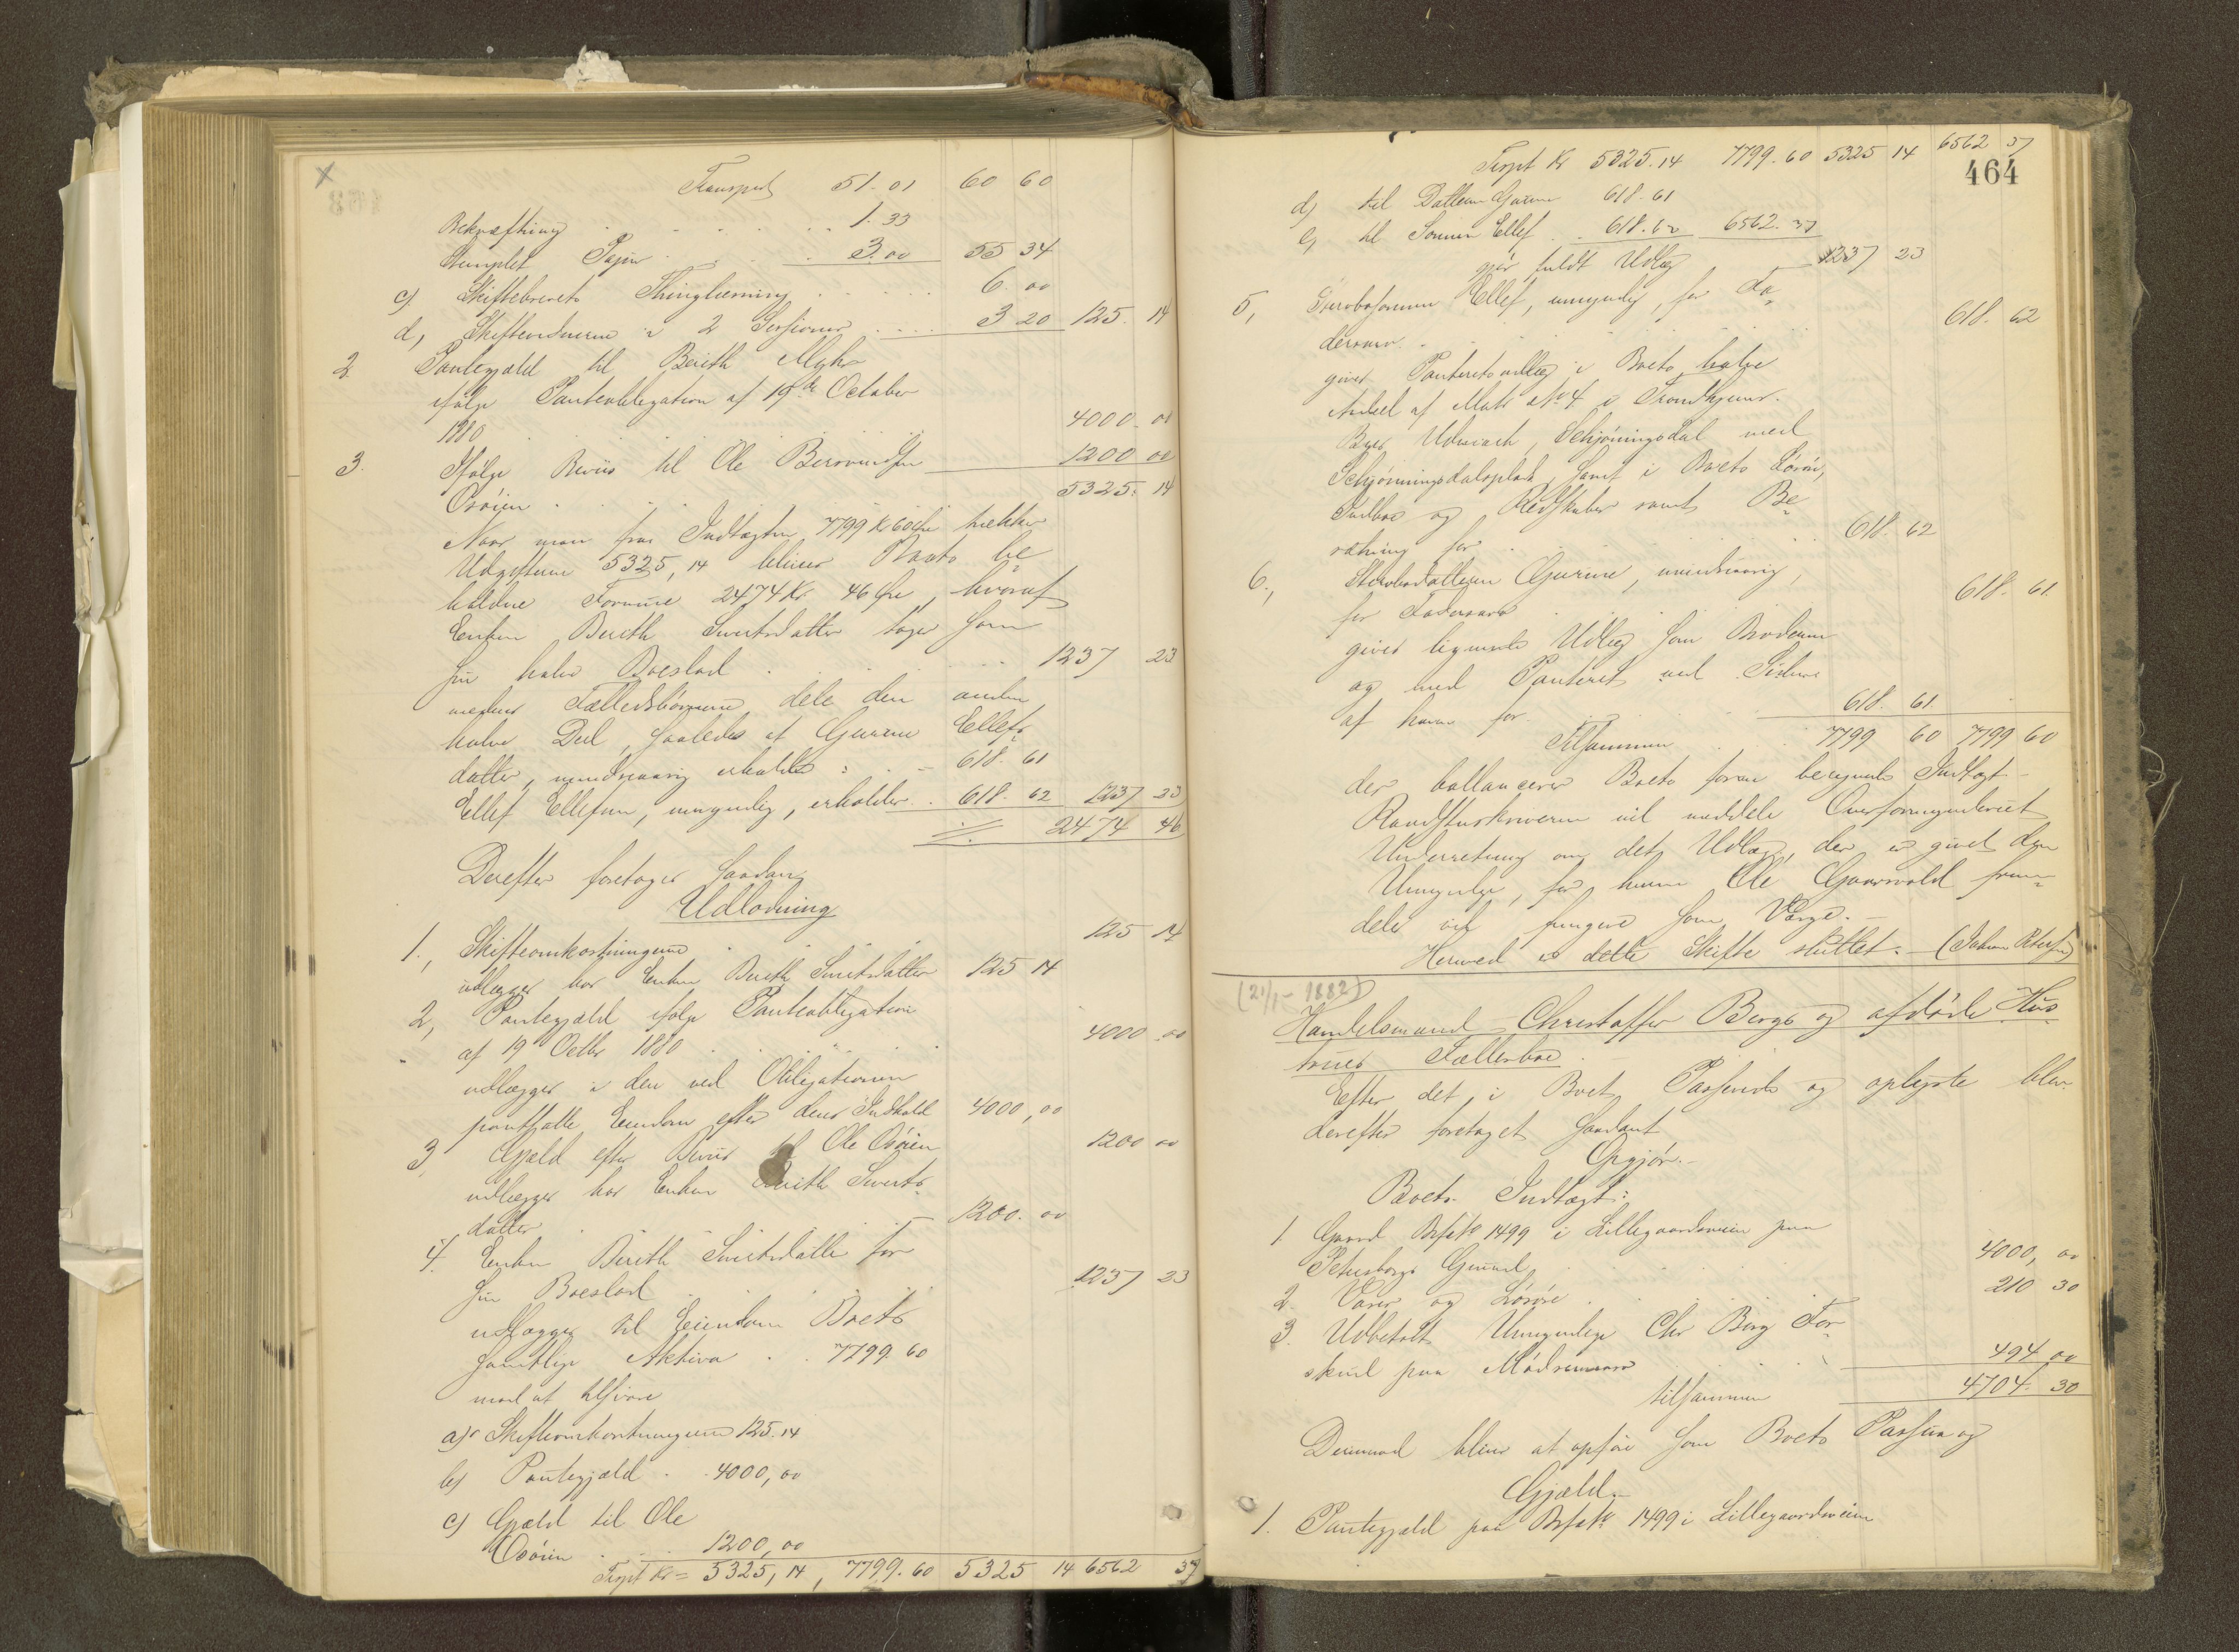 Transport 51.01 60 60
Bekræftning 1.33
Stemplet Papir 3.00 55 34
c) Skiftebrevets Thinglæsning 6.00
d, Skifteordnerne i 2 Sessioner 3 20 125. 14
2 Pantegjæld til Berith
ifølge Panteobligation af 19de October
1880 4000.00
3. Ifølge Beviis til Ole
Osøien 1200 00
5325. 14
Naar man fra Indtægten 7799 Kr 60 Øre trækker
Udgifterne 5325,14 bliver Boets be-
holdne Formue 2474 Kr. 46 Øre, hvoraf
Enken Berith Sivertsdatter tager som
sin halve Boeslod 1237 23
medens Fællesbørnene dele den anden
halve Deel, saaledes at Gurine Ellefs-
datter, mindreaarig erholder: 618. 61
Ellef Ellefsen, umyndig, erholder 618. 62 1237 23
2474 46
Derefter foretages saadan
Udlodning
1., Skifteomkostningerne 125 14
udlægges hos Enken Berith Sivertsdatter 125 14
2, Pantegjæld ifølge Panteobligation
af 19 Octbr 1880 4000.00
udlægges i den ved Obligationen
pantsatte Eiendom efter dens Indhold 4000,00
3, Gjæld efter Beviis til Ole Osøien 1200 00
udlægges hos Enken Berith Siverts-
datter 1200.00
4. Enken Berith Sivertsdatter for
sin Boeslod 1237 23
udlægges til Eiendom Boets
samtlige Aktiva 7799.60
mod at tilsvare
a) Skifteomkostningerne 125.14
b) Pantegjæld 4000,00
c) Gjæld til Ole
Osøien 1200,00
Trspt Kr = 5325,14, 7799.60 5325 14 6562 37
464
Trspt Kr 5325.14 7799.60 5325 14 6562 37
d) til Datteren Gurine 618.61
e) til Sønnen Ellef 618.62 6562.37
gjør fuldt Udlæg 1237 23
5, Stervbosønnen Ellef, umyndig, for Fa-
derarv 618. 62
gives Panteretsudlæg i Boets halve
Andeel af Matr No 4 i Trondhjems
Byes Udmark, Schjøningsdal med
Schjønningsdalsplads samt i Boets Løsøre,
Indboe og Redskaber samt Be-
sætning for 618. 62
6., Stervbodatteren Gurine, mindreaarig,
for Faderarv 618. 61.
gives lignende Udlæg som Broderen
og med Panteret ved Siden
af ham for 618. 61.
Tilsammen 7799 60 7799 60
der ballancerer Boets foran beregnede Indtægt
Raadstueskriveren vil meddele Overformynderiet
Underretning om det Udlæg, der er givet den
Umyndige, for hvem Ole Gaarvold frem-
deles vil fungere som Værge.
Hermed er dette Skifte sluttet. — (Johan Petersen)
(21/1 - 1882)
Handelsmand Christoffer Bergs og afdøde Hus-
trues Fællesboe
Efter det i Boet Passerede og oplyste blev
derefter foretaget saadant
Opgjør.
Boets Indtægt:
1 Gaard Brfsto 1499 i Lillegaardsveien paa
Petersborgs Grund 4000,00
2. Varer og Løsøre 210 30
3. Udbetalt Umyndige Chr Berg For-
skud paa Mødrenearv 494 00
tilsammen 4704. 30
Derimod bliver at opføre som Boets Passiva og
Gjæld.
1. Pantegjæld paa Brfsto 1499 i Lillegaardsveien